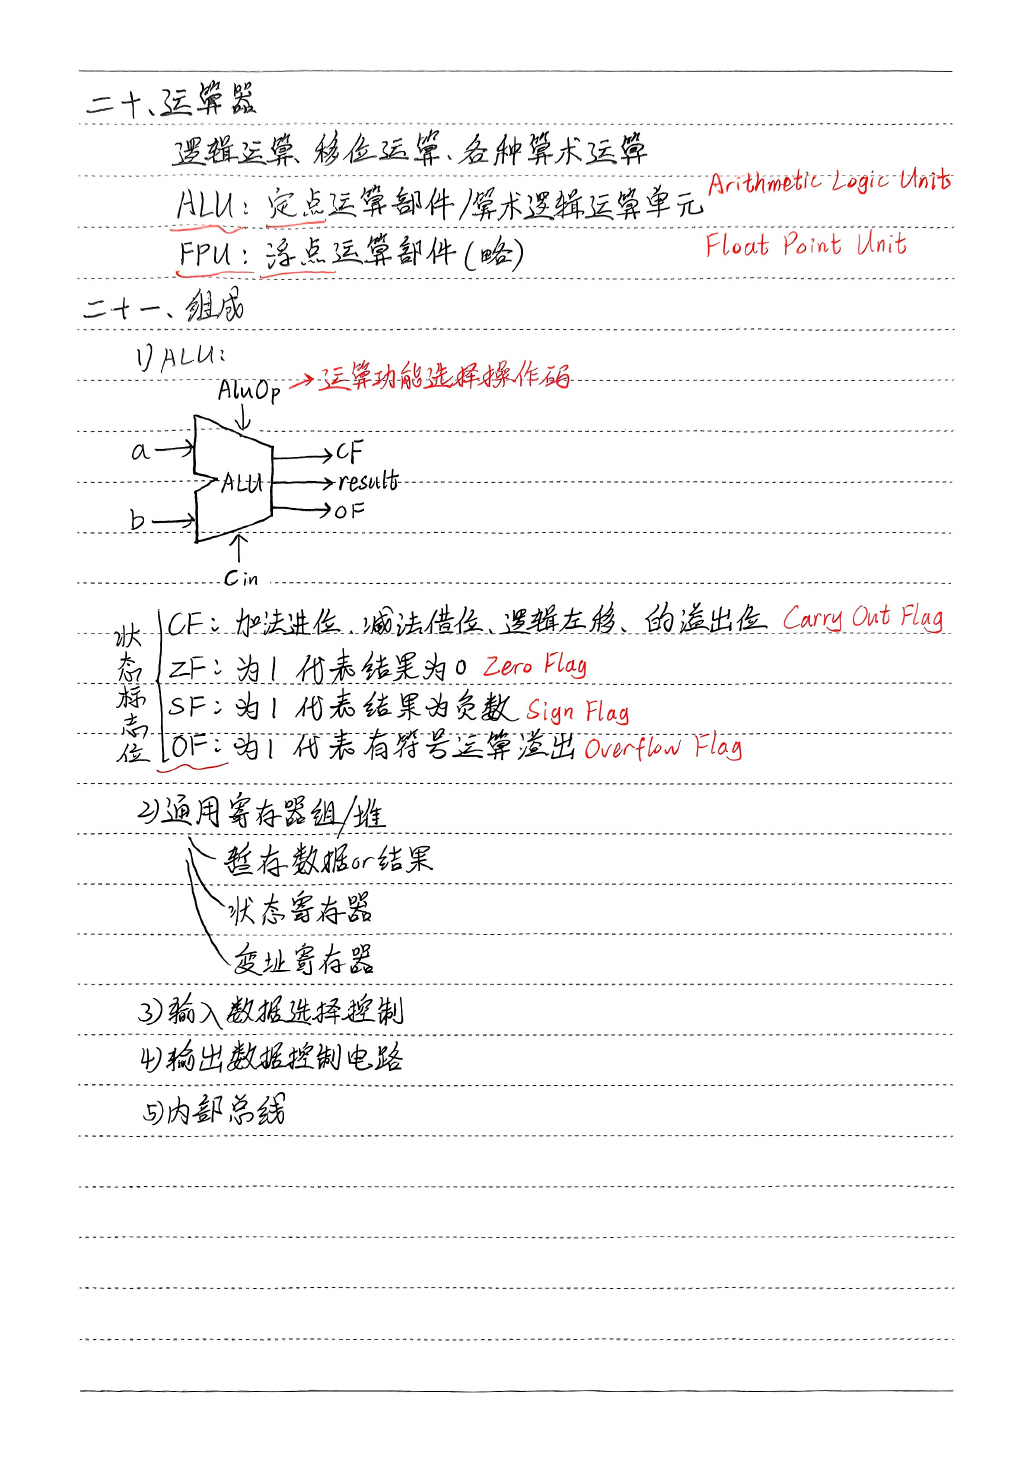 二十、运算器
逻辑运算、移位运算、各种算术运算
ALU：定点运算部件/算术逻辑运算单元 Arithmetic Logic Units
FPU：浮点运算部件(略) Float Point Unit
二十一、组成
1) ALU：
AluOp → 运算功能选择操作码
a
CF
ALU
result
b
OF
Cin
状态标志位
CF：加法进位、减法借位、逻辑左移、的溢出位 Carry Out Flag
ZF：为1代表结果为0 Zero Flag
SF：为1代表结果为负数 Sign Flag
OF：为1代表有符号运算溢出 Overflow Flag
2)通用寄存器组/堆
暂存数据or结果
状态寄存器
变址寄存器
3)输入数据选择控制
4)输出数据控制电路
5)内部总线